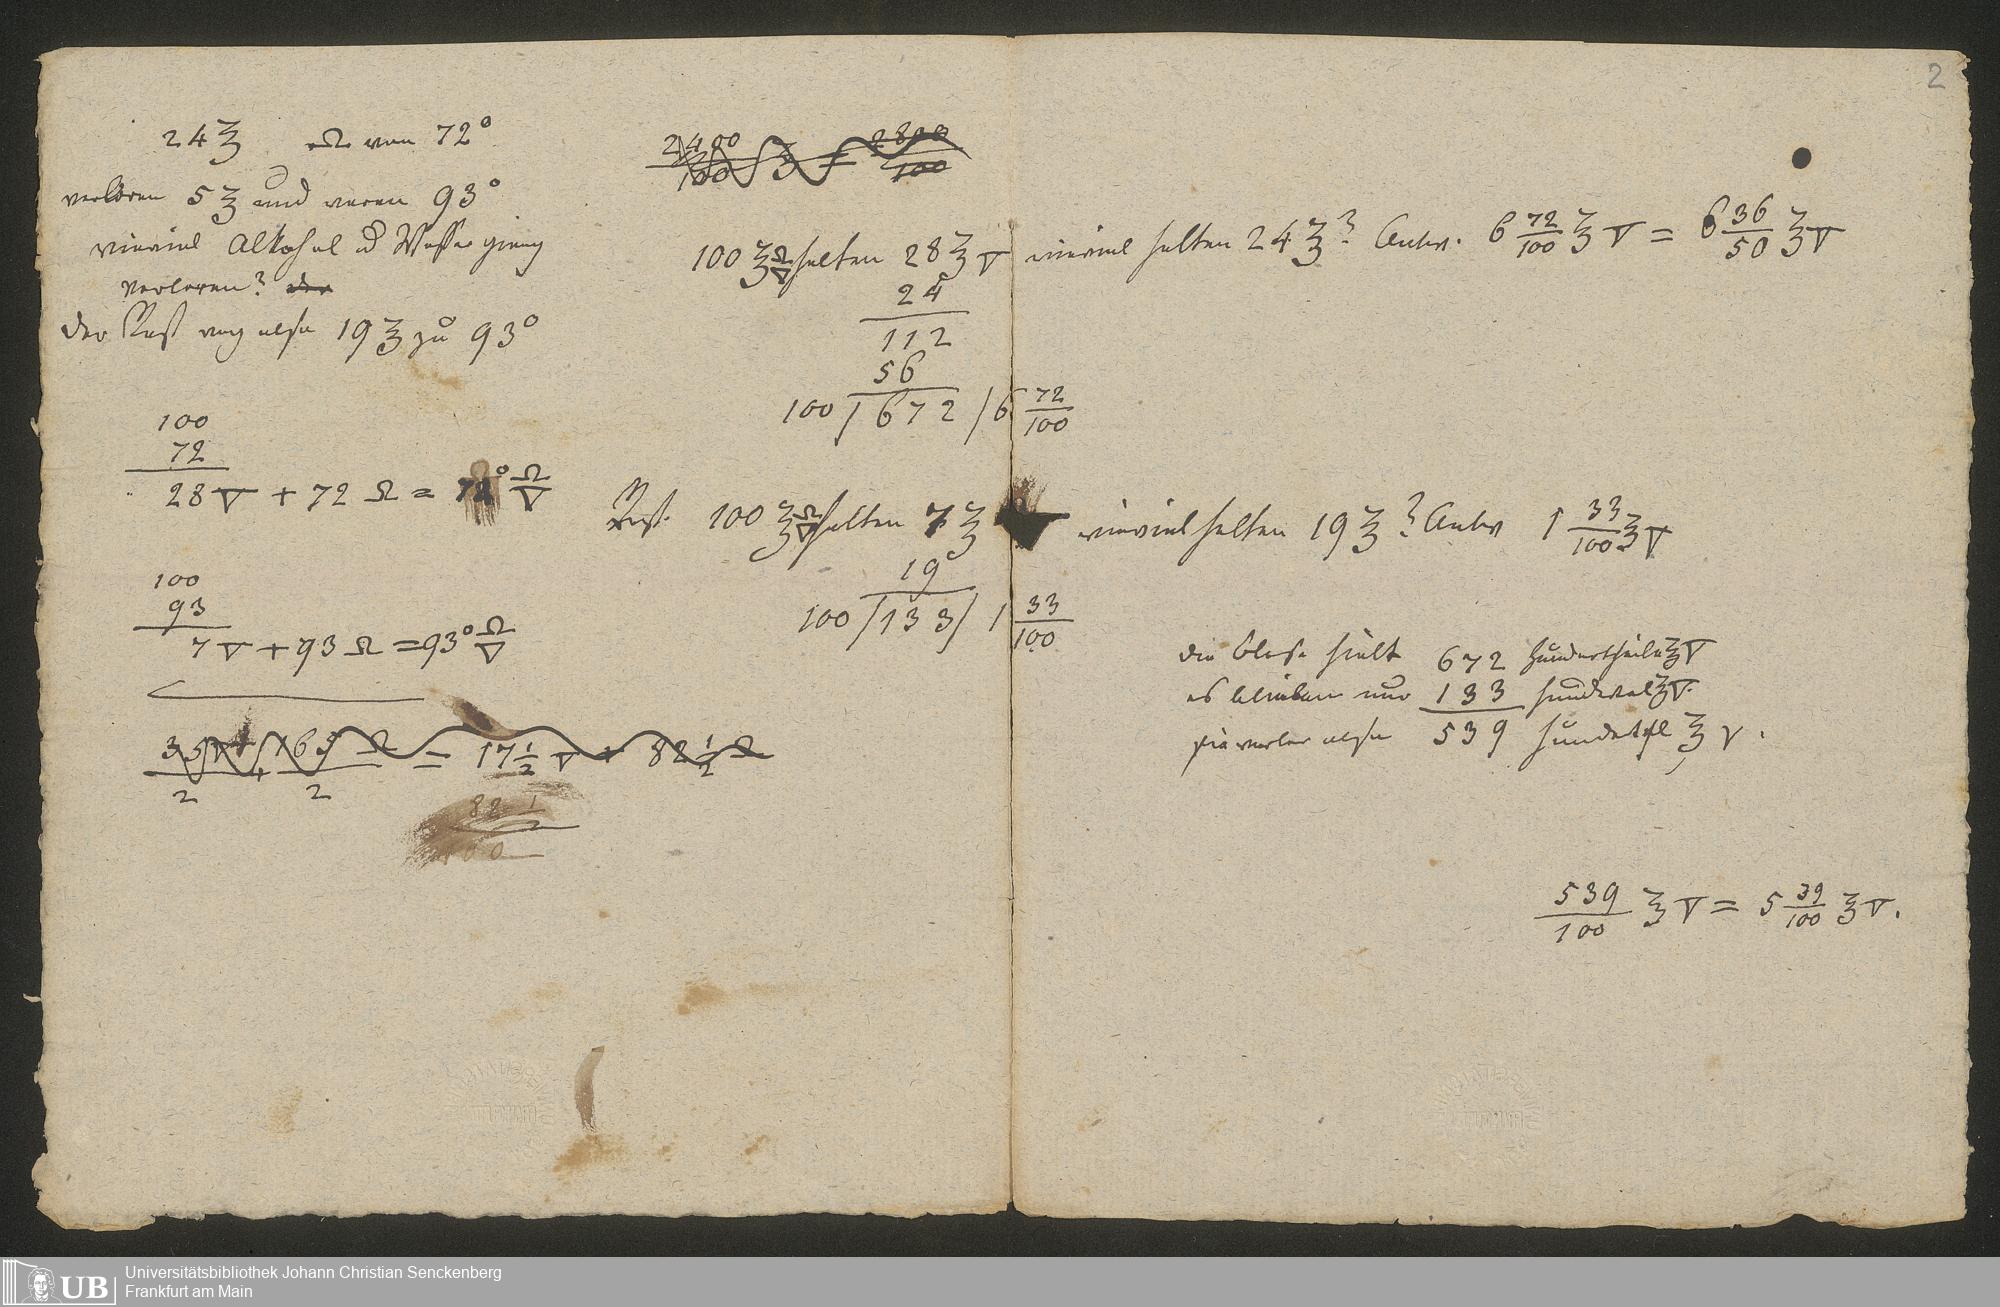 2
24 ℥ Ω von 72°
verloren 5 ℥ und waren 93°
wieviel Alkohol u Wasser gieng
verloren?
der Rest wog also 19 ℥ zu 93°
100
72
28 ▽ + 72 Ω = 72° Ω/▽
100
93
7 ▽ + 93 Ω = 93° Ω/▽
35 ▽/2 + 165 Ω/2 = 17 1/2 ▽ + 82 1/2 Ω
82 1/2
100
2400/100 ℥ = 2800/100
100 ℥ Ω/▽ halten 28 ℥ ▽ wieviel halten 24 ℥? Antw. 6 72/100 ℥ ▽ = 6 36/50 ℥ ▽
24
112
56
100 / 672 / 6 72/100
Rest. 100 ℥ Ω/▽ halten 7 ℥ ▽ wieviel halten 19 ℥? Antw 1 33/100 ℥ ▽
19
100 / 133 / 1 33/100
die Blase hielt 672 hundertheile ℥ ▽
es blieben nur 133 ℥ ▽.
sie verlor also 539 ℥ ▽.
539/100 ℥ ▽ = 5 39/100 ℥ ▽.
UB
Universitätsbibliothek Johann Christian Senckenberg
Frankfurt am Main